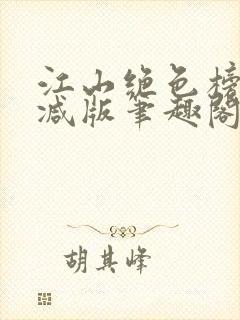 江山绝色榜
减版笔趣阁
胡其峰